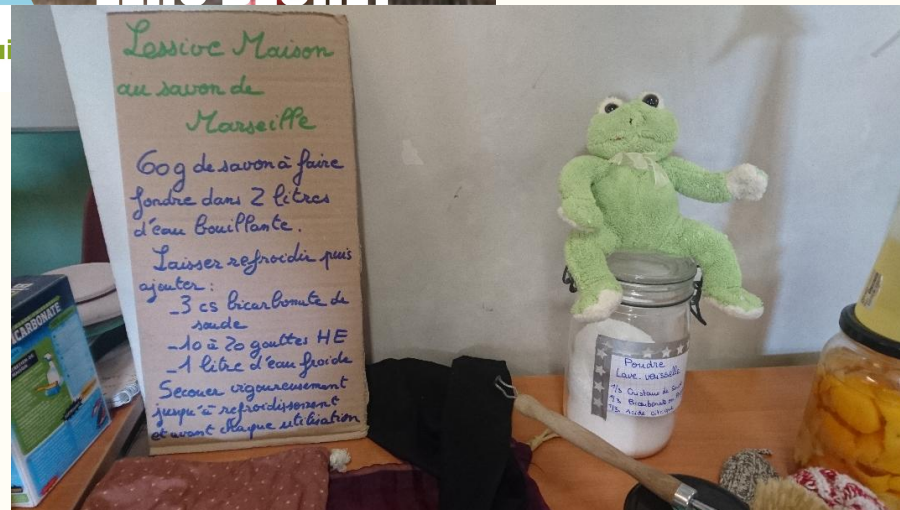 Lessive Maison
au savon de
Marseille
60g de savon à faire
fondre dans 2 litres
d'eau bouillante.
Laisser refroidir puis
ajouter :
_3 cs bicarbonate de
soude
_10 à 20 gouttes HE
_1 litre d'eau froide
Secouer vigoureusement
jusqu'à refroidissement
et avant chaque utilisation
BICARBONATE
Poudre
Lave-vaisselle
1/3 Cristaux de Soude
1/3 Bicarbonate
1/3 acide citrique